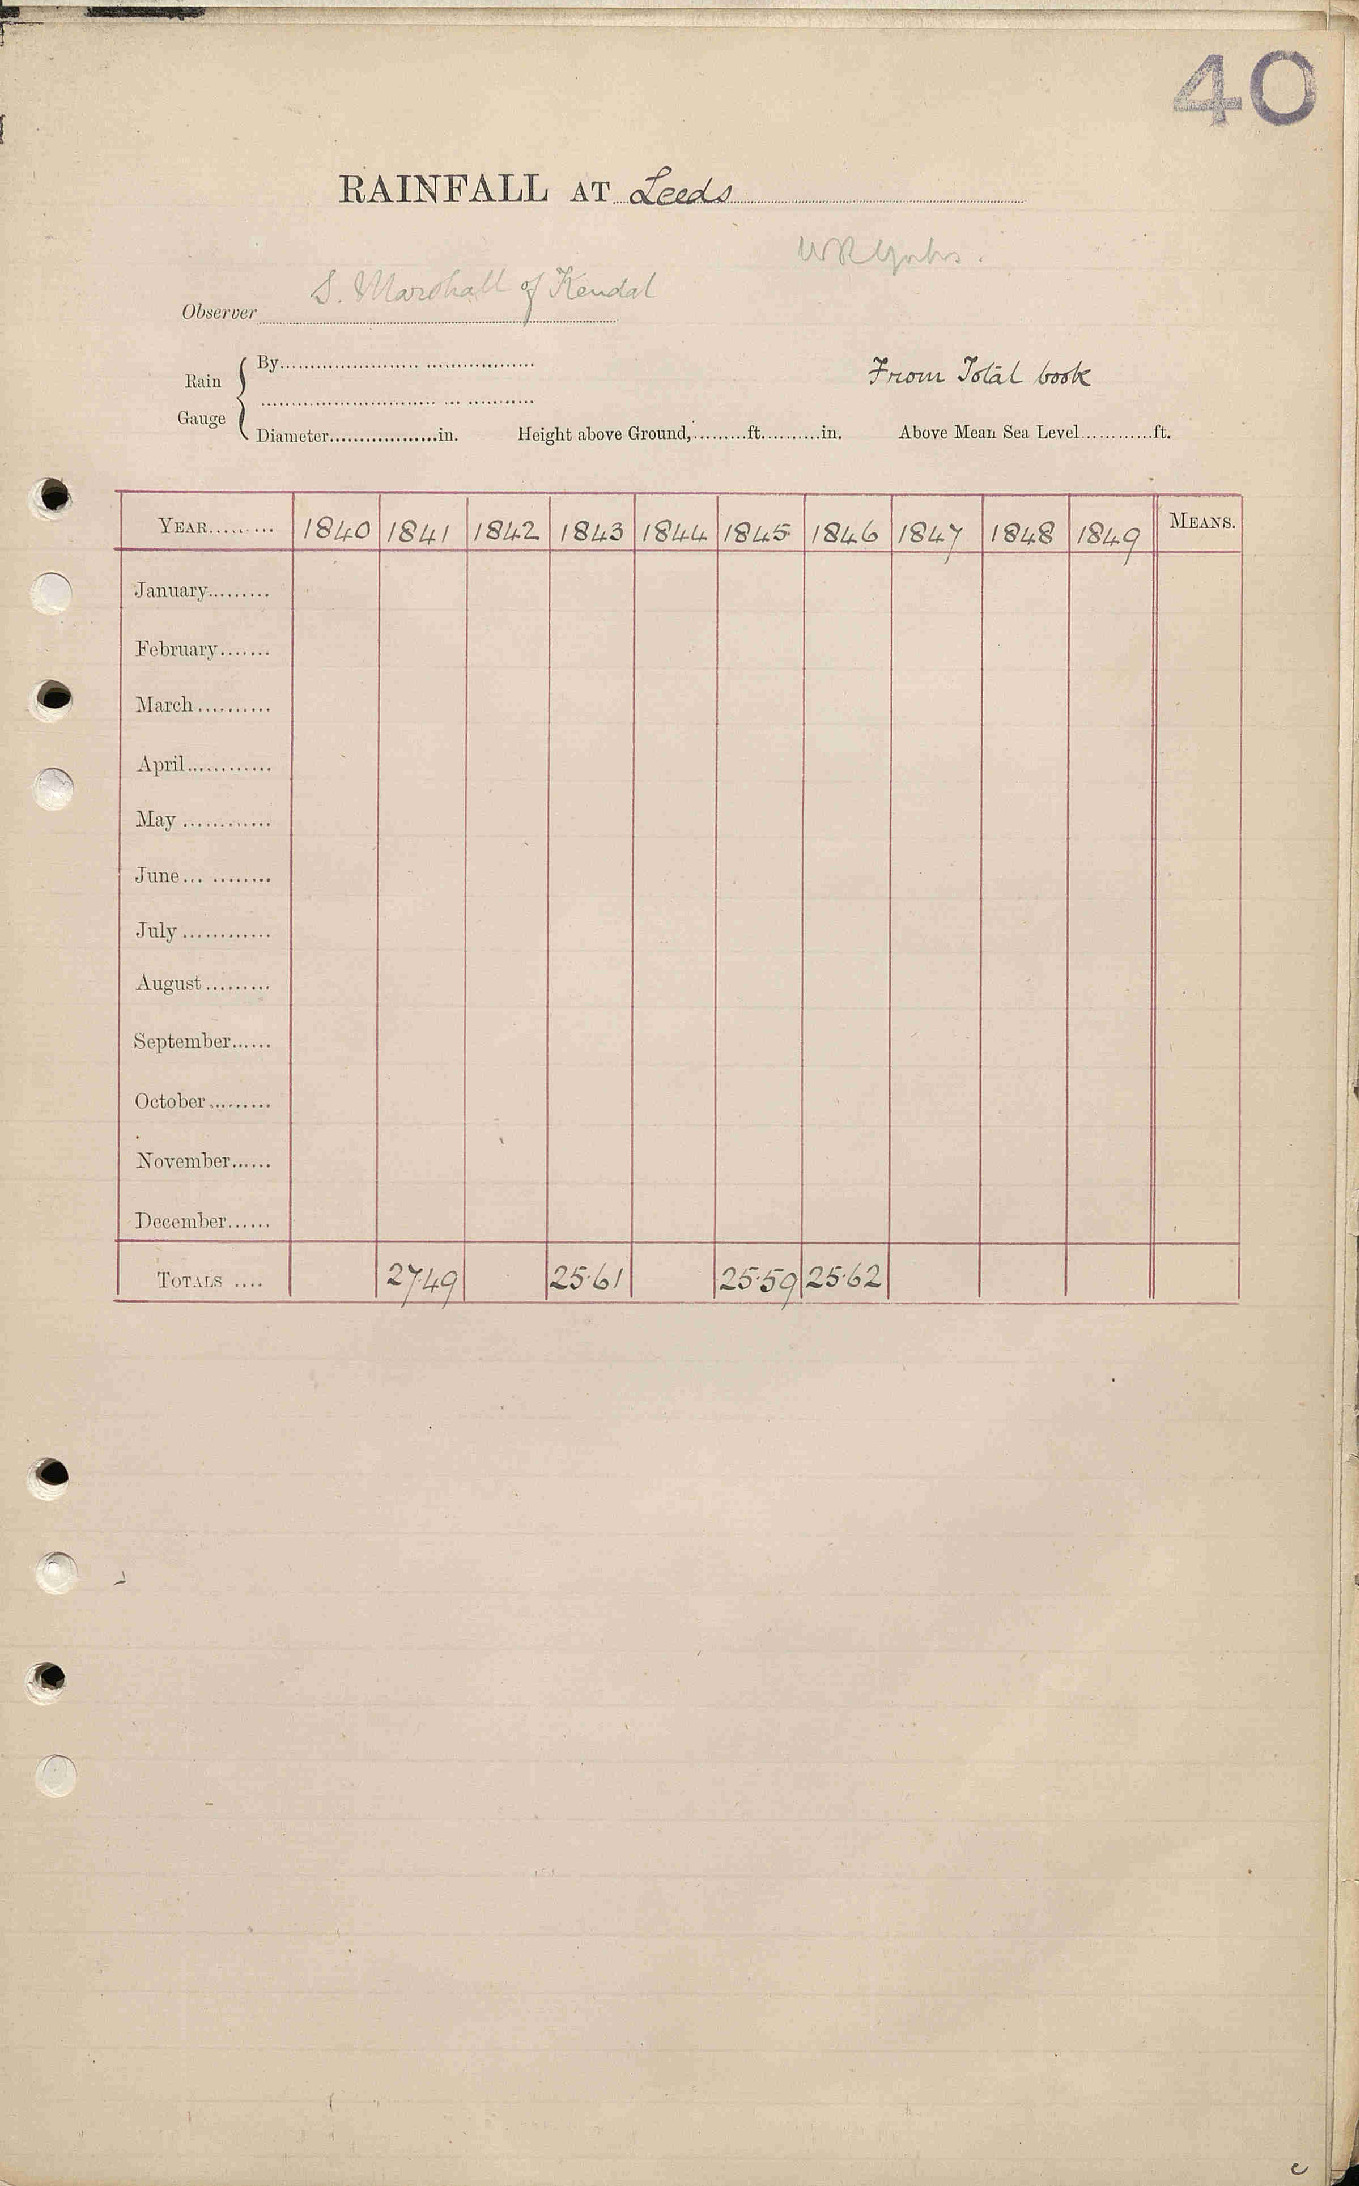 40
RAINFALL AT Leeds
W R Yorks.
S. Marshall of Kendal
Observer
By
Rain
From Total book
Gauge
Diameter..................in. Height above Ground,.........ft..........in. Above Mean Sea Level............ft.
YEAR......... 1840 1841 1842 1843 1844 1845 1846 1847 1848 1849 MEANS.
January.........
February.......
March..........
April............
May ............
June... ........
July ............
August.........
September......
October.........
November......
December......
TOTALS .... 27.49 25.61 25.59 25.62
c